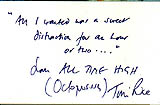 "All I wanted was a sweet
distraction for an hour
or two...."
from ALL TIME HIGH
(Octopussy) Tim Rice